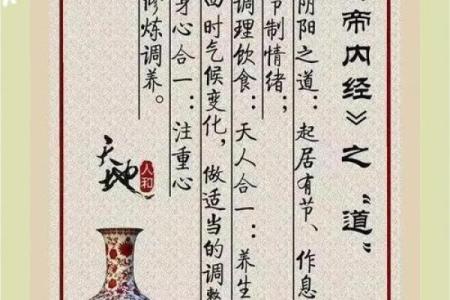 帝内经》之“道”
阴阳之道：起居有节、作息
节制情绪；
调理饮食：天人合一：养生
四时气候变化，做适当的调整
身心合一：注重心
修炼调养。
天地
人和